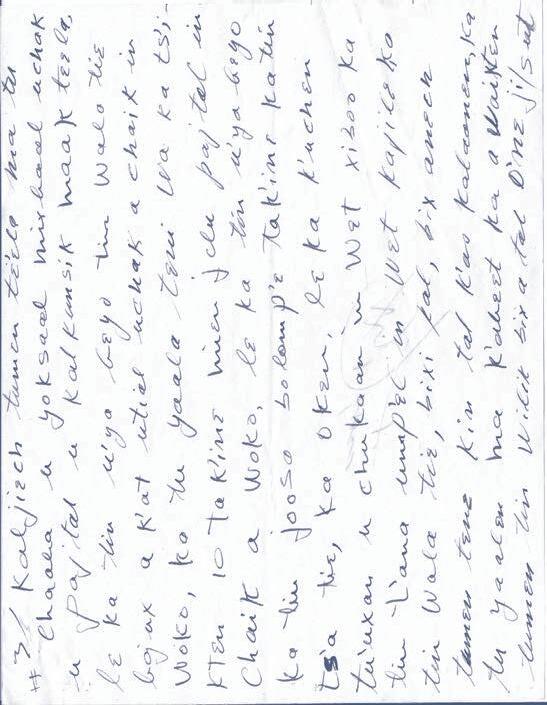 #3/ Kaljiech tumen teela ma tu
Chaaba u yoksaal mixbaal uchak
u pajtal u kalkansik maak teela,
le ka tin u'ya beyo tin wala tie
bajux a k'at utial uchak a chaik in
woko, ka tu yaala teni wa ka ts'i
kten 10 tak'ine minen jchu pajtal in
Chaik a woko, le ka tin u'ya beyo
ka tin jooso bolomp'e tak'ine ka tin
ts'a tie, ka oken, le ka k'uchen
tu'uxan u chukaan in wet xiboo ka
tin t'ana ump'el in wet kajile ka
tin wala tie, bixi pal, bix anech
tumen tene kin tal k'as kalaanen, ka
tu yaalen ma k'abeet ka a waiken
tumen tin wilik bix a tal o'ne jilsut